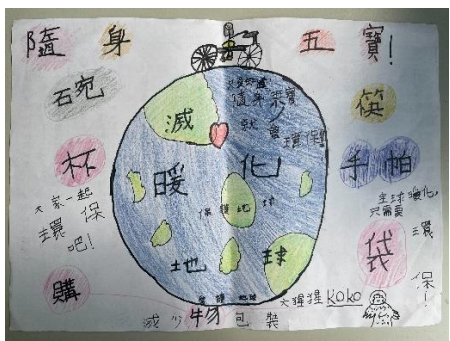 隨身五寶!
碗
筷
杯
手帕
袋
購
減
暖化
地球
保護地球
大家一起
環保
吧!
全球暖化,
只需要
環
保!
大猩猩KOKO
減少物包裝